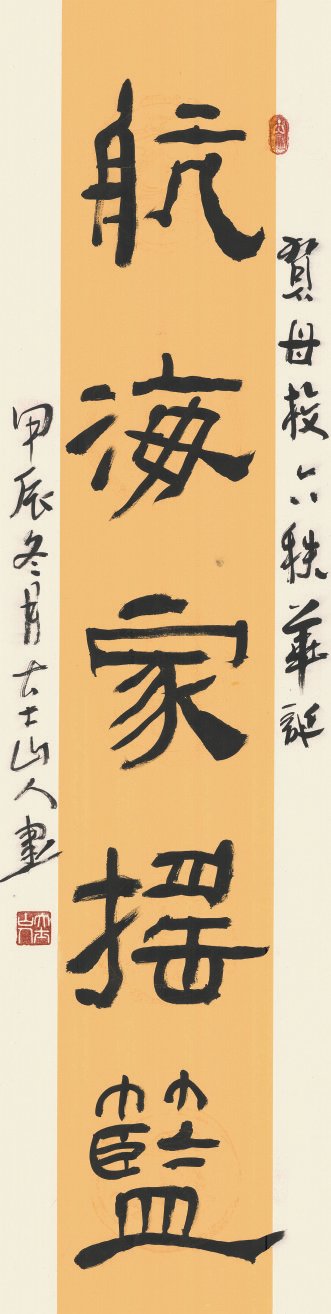 賀母校六秩華誕
航海家搖籃
甲辰冬月士山人書